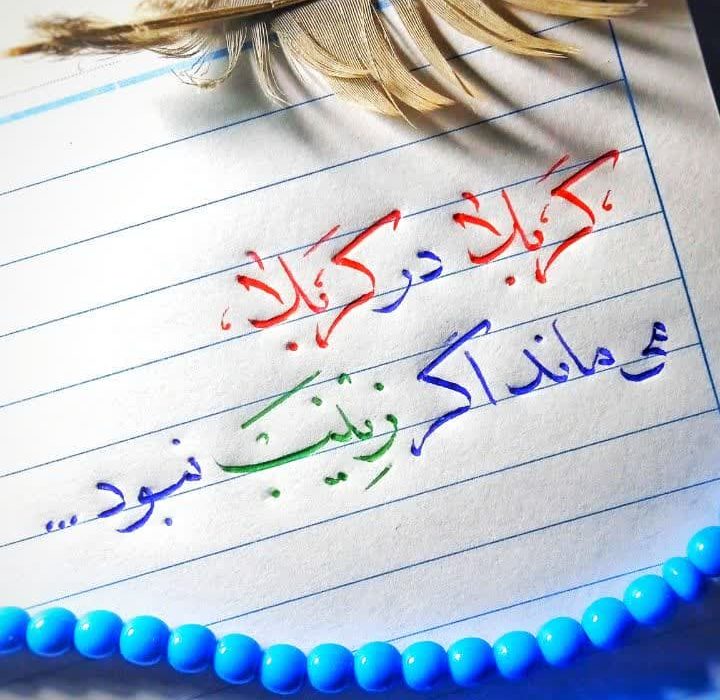 کربلا در کربلا
می ماند اگر زینب نبود...